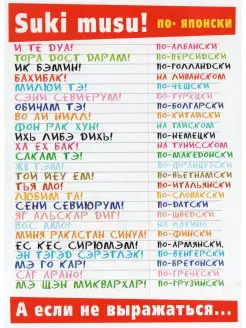 Suki musu! ПО- ЯПОНСКИ
И ТЕ DУА! ПО-АЛБАНСКИ
ТОРА DОСТ DАРАМ! ПО-ПЕРСИДСКИ
ИК БЭМИН! ПО-ГОЛЛАНДСКИ
БАХИБАК! НА ЛИВАНСКОМ
МИЛУЮ ТЭ! ПО-ЧЕШСКИ
СЭНИ СЕВИЕРУМ! ПО-ТУРЕЦКИ
ОБИЧАМ ТЭ! ПО-БОЛГАРСКИ
ВО АЙ НИЛЛ! ПО-КИТАЙСКИ
ФОН РАК ХУН! НА ТАЙСКОМ
ИХЬ ЛИБЭ DИХЬ! ПО-НЕМЕЦКИ
ХА ЕХ БАК! НА ТУНИССКОМ
САКАМ ТЭ! ПО-МАКЕДОНСКИ
ЖЕ ТЭМ! ПО-ФРАНЦУЗСКИ
ТОЙ ЙЕУ ЕМ! ПО-ВЬЕТНАМСКИ
ТЬЯ МО! ПО-ИТАЛЬЯНСКИ
ЛЮБИМ ТА! ПО-СЛОВАЦКИ
СЕНИ СЕВИЕМ! ПО-DАТСКИ
ЯГ АЛЬСКАР DИГ! ПО-ШВЕDСКИ
ВОС АМО! НА ЛАТЫНИ
МИНЯ РАКАСТАН СИНУА! ПО-ФИНСКИ
ЕС КЕС СИРЮМЭМ! ПО-АРМЯНСКИ,
ЭН ТЭГЭD СЭРЭТЛЭК! ПО-ВЕНГЕРСКИ
МЭ ГО КАР! ПО-БРЕТОНСКИ
САГ АРАНО! ПО-ГРЕЧЕСКИ
МЭ ЩЭН МИКВАРХАР! ПО-ГРУЗИНСКИ
А если не выражаться...